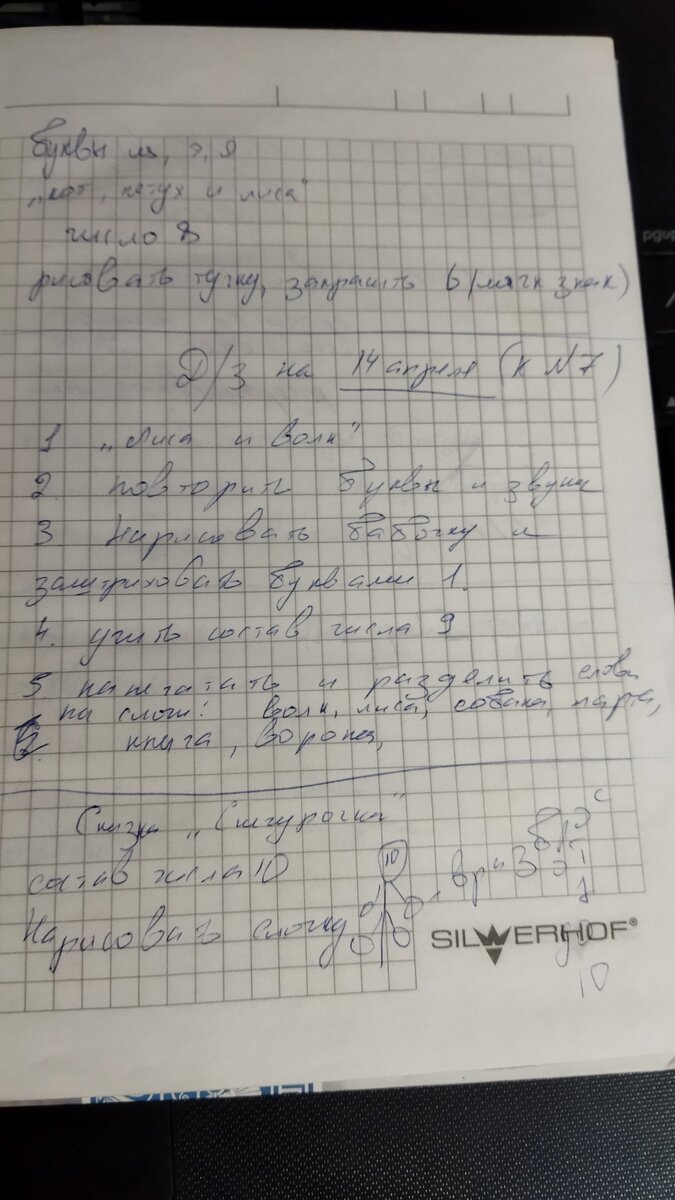 Буквы ш, э, я
„кот, петух и лиса"
число 8
рисовать тучку, закрасить ь (мягк знак)
Д/з на 14 апреля (к N 7)
1 „Лиса и волк"
2. повторить буквы и звуки
3 Нарисовать бабочку и
заштриховать буквами 1.
4. учить состав числа 9
5 напечатать и разделить слова
на слоги: волк, лиса, собака, парта,
книга, ворона,
Сказка „Снегурочка"
состав числа 10
10
Нарисовать елочку
SILWERHOF®
10
pgup